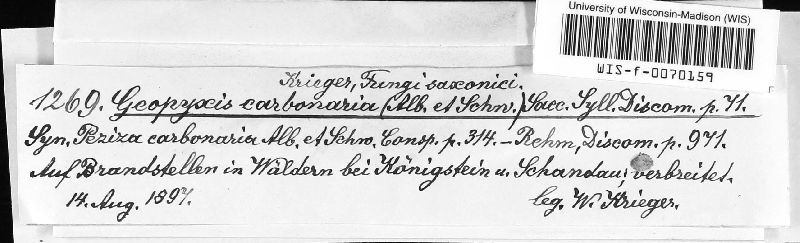 University of Wisconsin-Madison (WIS)
WIS-f-0070159
Krieger, Fungi saxonici.
1269. Geopyxis carbonaria (Alb. et Schw.) Sacc. Syll. Discom. p. 71.
Syn. Peziza carbonaria Alb. et Schw. Consp. p. 314. – Rehm, Discom. p. 971.
Auf Brandstellen in Wäldern bei Königstein u. Schandau; verbreitet.
14. Aug. 1897. leg. W. Krieger.